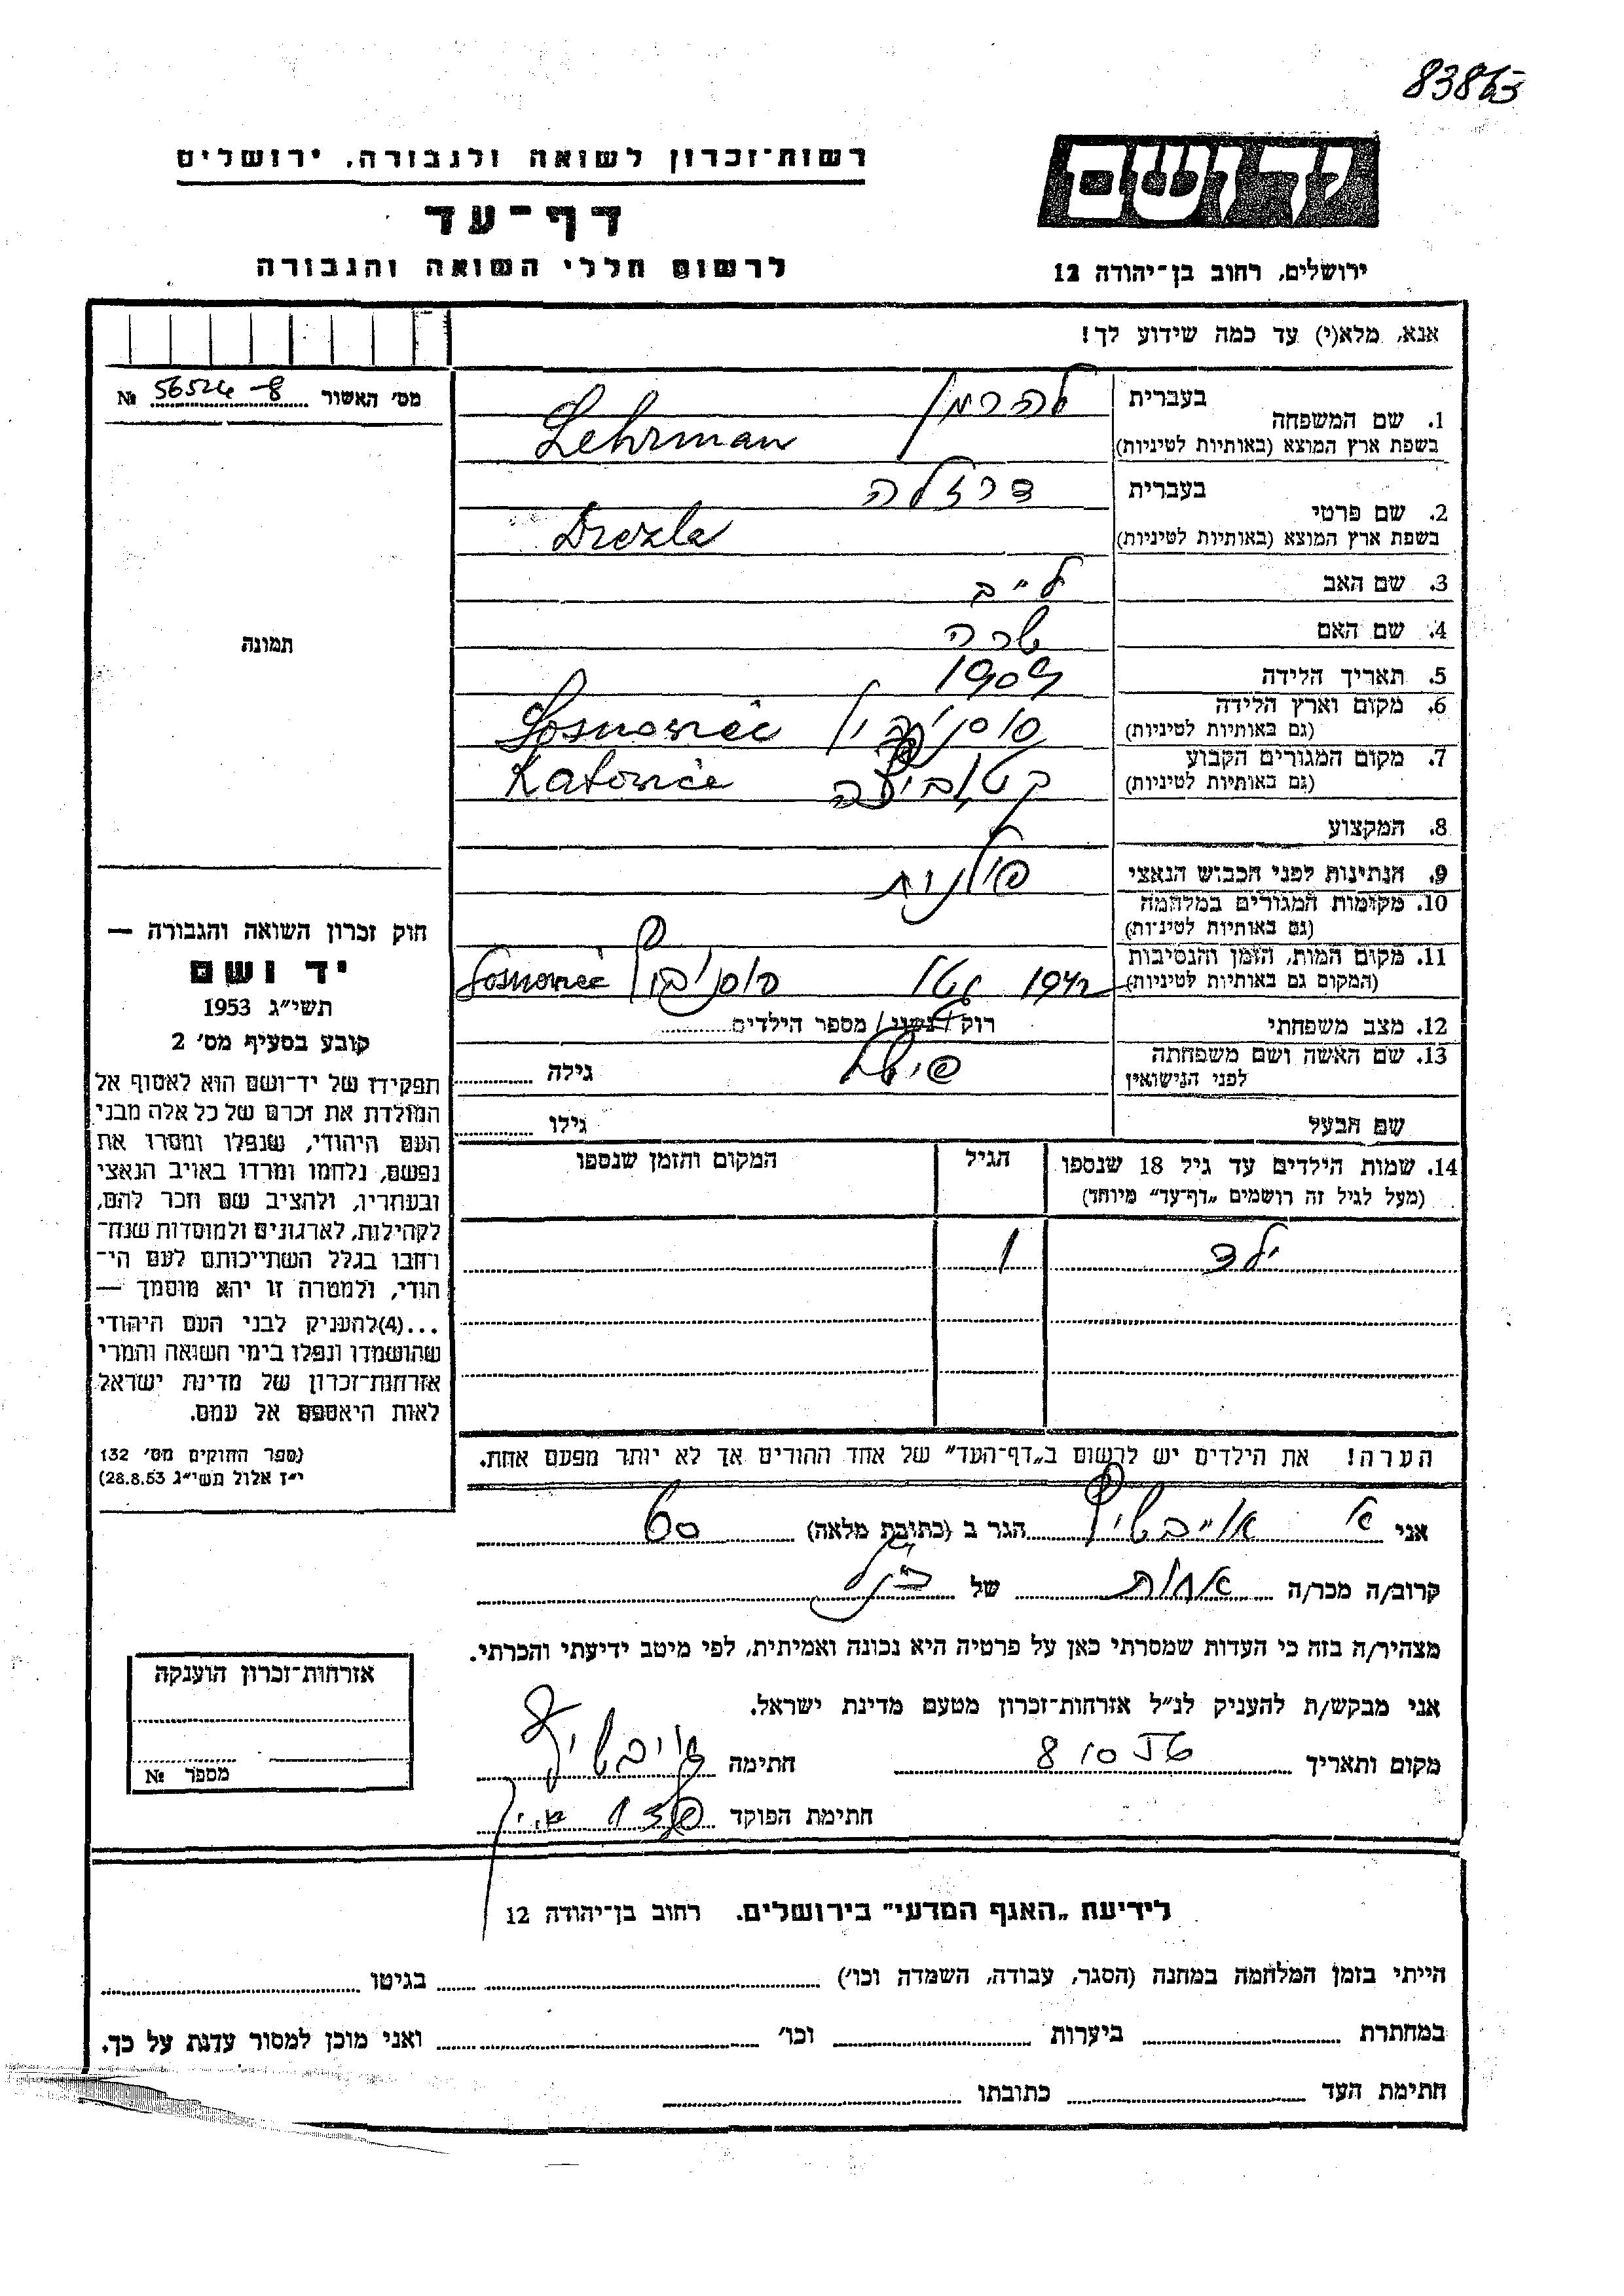 רשות־זכרון לשואה ולגבורה, ירושלים
דף־עד
לרשום חללי השואה והגבורה
יד ושם
ירושלים, רחוב בן־יהודה 12
אנא, מלא(י) עד כמה שידוע לך!
מס׳ האשור № 56524-8
תמונה
1. שם המשפחה בעברית להרמן
בשפת ארץ המוצא (באותיות לטיניות) Lehrman
2. שם פרטי בעברית דרזלה
בשפת ארץ המוצא (באותיות לטיניות) Drezla
3. שם האב לייב
4. שם האם שרה
5. תאריך הלידה 1909
6. מקום וארץ הלידה
(גם באותיות לטיניות) Sosnowiec
7. מקום המגורים הקבוע
(גם באותיות לטיניות) קטוביצה Katowice
8. המקצוע
9. הנתינות לפני הכבוש הנאצי פולנית
10. מקומות המגורים במלחמה
(גם באותיות לטיניות)
11. מקום המות, הזמן והנסיבות
(המקום גם באותיות לטיניות) 1942 גטו Sosnowiec
12. מצב משפחתי רוק / נשוי / מספר הילדים
13. שם האשה ושם משפחתה
לפני הנישואין גילה
שם הבעל גילו
14. שמות הילדים עד גיל 18 שנספו הגיל המקום והזמן שנספו
(מעל לגיל זה רושמים „דף־עד״ מיוחד)
ילד 1
הערה! את הילדים יש לרשום ב„דף־העד״ של אחד ההורים אך לא יותר מפעם אחת.
חוק זכרון השואה והגבורה —
יד ושם
תשי״ג 1953
קובע בסעיף מס׳ 2
תפקידו של יד־ושם הוא לאסוף אל
המולדת את זכרם של כל אלה מבני
העם היהודי, שנפלו ומסרו את
נפשם, נלחמו ומרדו באויב הנאצי
ובעוזריו, ולהציב שם וזכר להם,
לקהילות, לארגונים ולמוסדות שנח־
רחבו בגלל השתייכותם לעם הי־
הודי, ולמטרה זו יהא מוסמך —
...(4)להעניק לבני העם היהודי
שהושמדו ונפלו בימי השואה והמרי
אזרחות־זכרון של מדינת ישראל
לאות היאספם אל עמם.
(ספר החוקים מס׳ 132
י״ז אלול תשי״ג 28.8.53)
אני הגר ב (כתובת מלאה)
קרוב/ה מכר/ה אחות של
מצהיר/ה בזה כי העדות שמסרתי כאן על פרטיה היא נכונה ואמיתית, לפי מיטב ידיעתי והכרתי.
אני מבקש/ת להעניק לנ״ל אזרחות־זכרון מטעם מדינת ישראל.
מקום ותאריך חתימה
חתימת הפוקד
אזרחות־זכרון הוענקה
מספר №
לידיעת „האגף המדעי״ בירושלים. רחוב בן־יהודה 12
הייתי בזמן המלחמה במחנה (הסגר, עבודה, השמדה וכו׳) בגיטו
במחתרת ביערות וכו׳ ואני מוכן למסור עדות על כך.
חתימת העד כתובתו